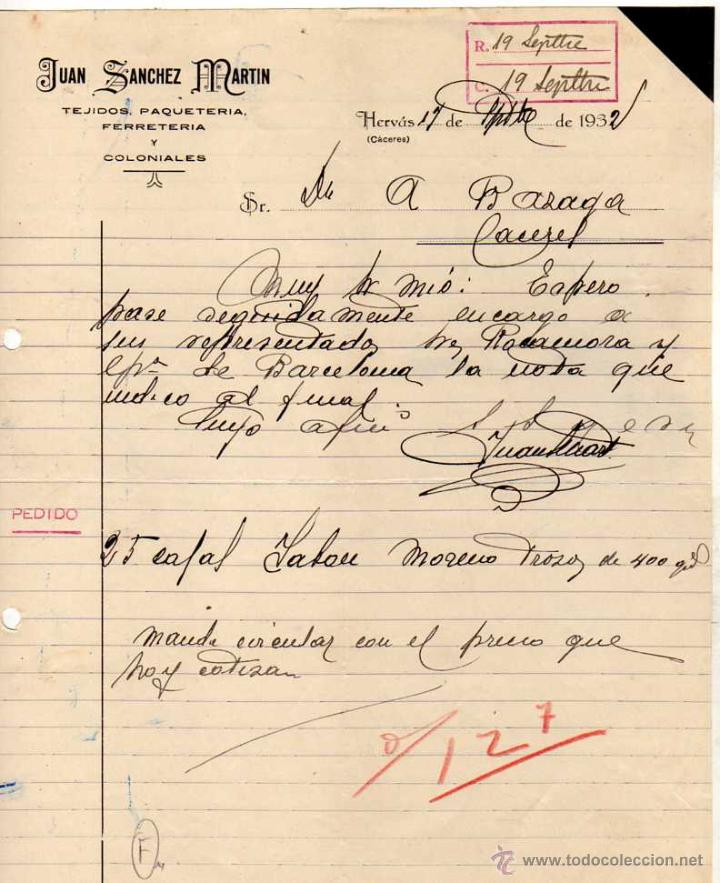 JUAN SANCHEZ MARTIN
TEJIDOS, PAQUETERIA,
FERRETERIA
Y
COLONIALES
R. 19 Septbre
C. 19 Septbre
Hervás 17 de Sptbe de 1932
(Cáceres)
Sr. Dn A Bazaga
Caceres
Muy Sr mio: Espero
pase seguidamente encargo a
sus representados Sres Rocamora y
Cpª de Barcelona la nota que
indico al final
Suyo afmo
Juan
PEDIDO
25 cajas Jabon Moreno trozos de 400 grs
Mande circular con el precio que
hoy cotizan
127
F
www.todocoleccion.net